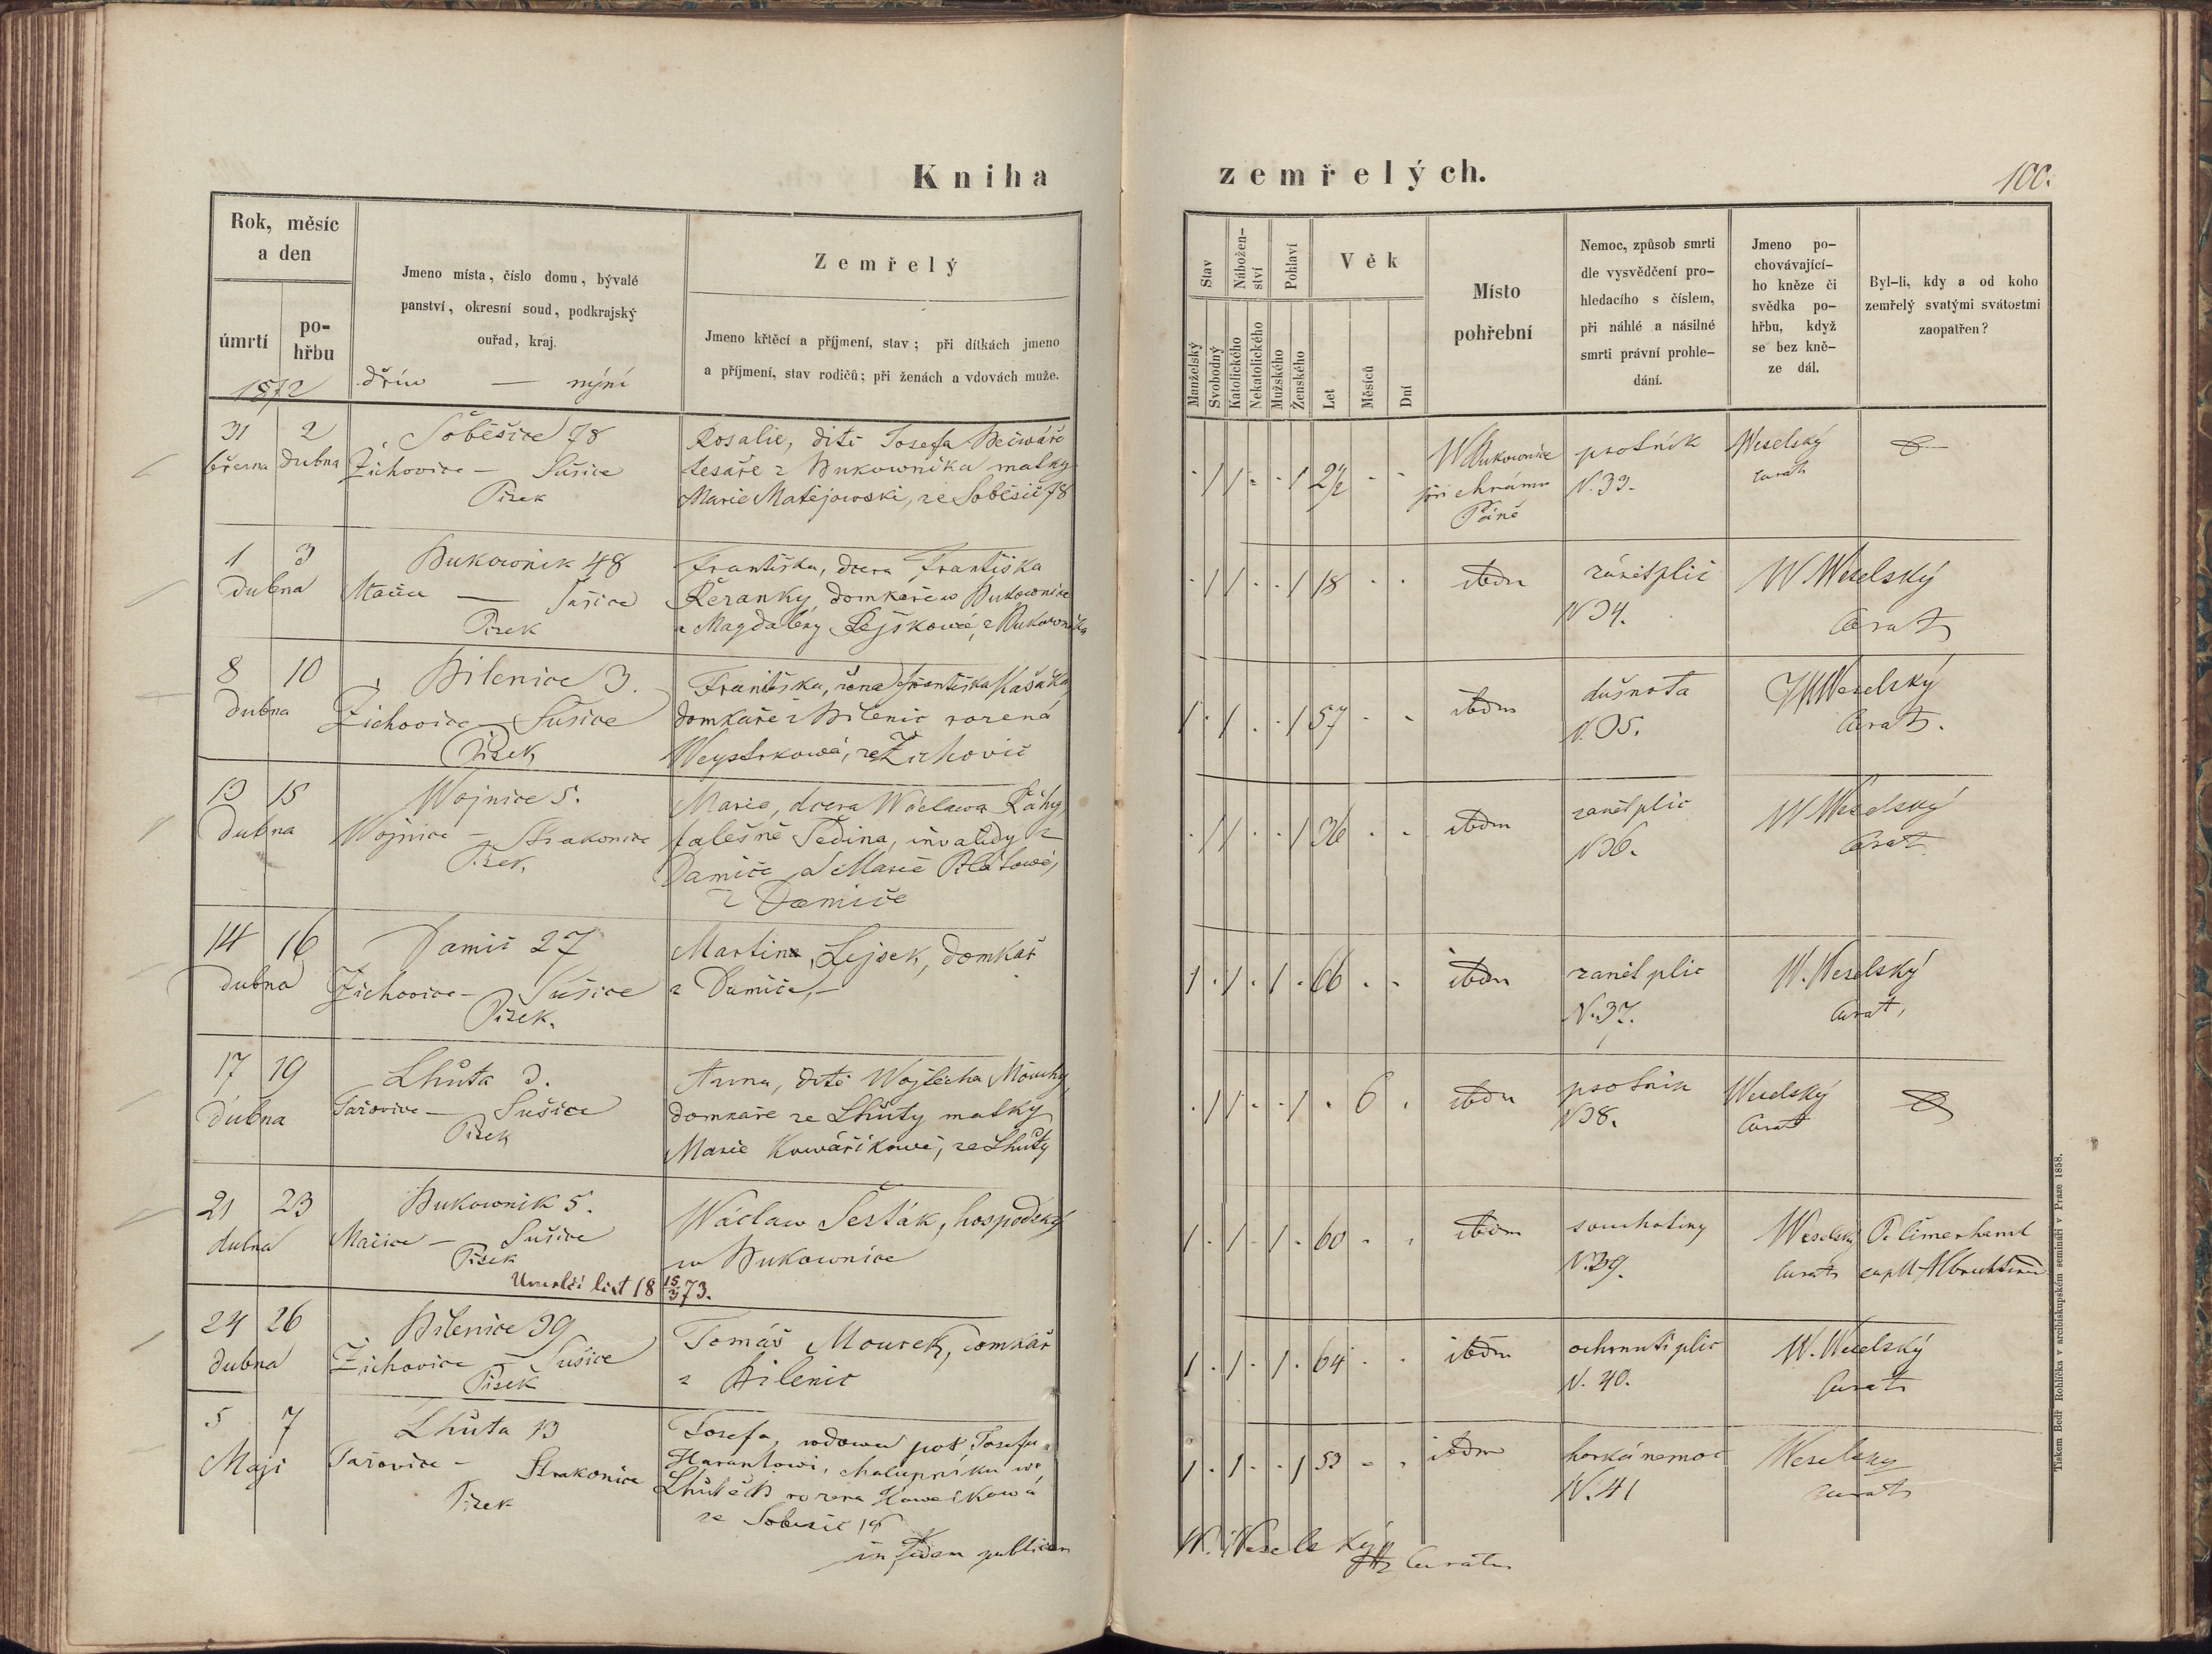 Kniha
zemřelých.
100.
Rok, měsíc
a den
úmrtí
po-
hřbu
1872
Jmeno místa, číslo domu, bývalé
panství, okresní soud, podkrajský
ouřad, kraj.
dřív — nýní
Zemřelý
Jmeno křtěcí a příjmení, stav; při dítkách jmeno
a příjmení, stav rodičů; při ženách a vdovách muže.
Stav
Nábožen-
ství
Pohlaví
Věk
Manželský
Svobodný
Katolického
Nekatolického
Mužského
Ženského
Let
Měsíců
Dní
Místo
pohřební
Nemoc, způsob smrti
dle vysvědčení pro-
hledacího s číslem,
při náhlé a násilné
smrti právní prohle-
dání.
Jmeno po-
chovávající-
ho kněze či
svědka po-
hřbu, když
se bez kně-
ze dál.
Byl-li, kdy a od koho
zemřelý svatými svátostmi
zaopatřen?
31 2
března dubna
Soběšice 78
Žichovice — Sušice
Písek
Rosalie, dítě Josefa
tesaře z Bukowníka matky
Marie Matějowski, ze Soběšic 78
1 1 1 2½
W Bukownice
při chrámu
Páně
psotník
N. 33.
Weselský
Curat
1 3
dubna
Bukownik 48
— Sušice
Písek
Františka, dcera Františka
Řeranky domkaře w Bukownice
a Magdaleny Lejskowé, z Bukowníka
1 1 1 18
ibdm
zánět plic
N 34.
W Weselský
Curat
8 10
dubna
Bilenice 3.
Žichovice — Sušice
Písek
Františka, žena Františka Kašáka
domkaře z Bilenic rozená
ze Žichovic
1 1 1 57
ibdm
dušnota
N. 35.
Weselský
Curat.
13 15
dubna
Wojnice 5.
Wojnice — Strakonice
Písek
Marie, dcera Wáclawa Řáhy,
falešně Tedina, invalidy z
Damíče a Marie Pilátowé,
z Damíče
1 1 1 36
ibdm
zanět plic
N 36.
W Weselský
Curat
14 16
dubna
Damič 27
Žichovice — Sušice
Písek.
Martin Lejsek, domkař
z Damíče,—
1 1 1 66
ibdm
zanět plic
N. 37.
W. Weselský
Curat,
17 19
dubna
Lhůta 3.
Tažovice — Sušice
Písek
Anna, dítě Wojtěcha Mouchy,
domkaře ze Lhůty matky
Marie Kowářikowé, ze Lhůty
1 1 1 6
ibdm
psotnik
N 38.
Weselský
Curat
21 23
dubna
Bukownik 5.
Mačice — Sušice
Písek
Wáclaw Šesták, hospodský
w Bukownice
Umrlčí list 18 15/3 73.
1 1 1 60
ibdm
souchotiny
N. 39.
Weselsky
Curat
24 26
dubna
Bilenice 39
Žichovice — Sušice
Písek
Tomáš Mourek, domkař
z Bilenic
1 1 1 64
ibdm
ochrnutí plic
N. 40.
W. Weselský
Curat
5 7
Máji
Lhůta 13
Tažovice — Strakonice
Písek
Josefa, wdowa po Josefu
Harantowi, chalupníku we
ze Sobešic 19
1 1 1 53
ibdm
horká nemoc
N. 41
Weselsky
Curat
in fidem publicam
W. Weselský
Curatus
Tiskem Bedř Rohlíčka v arcibiskupském semináři v Praze 1858.